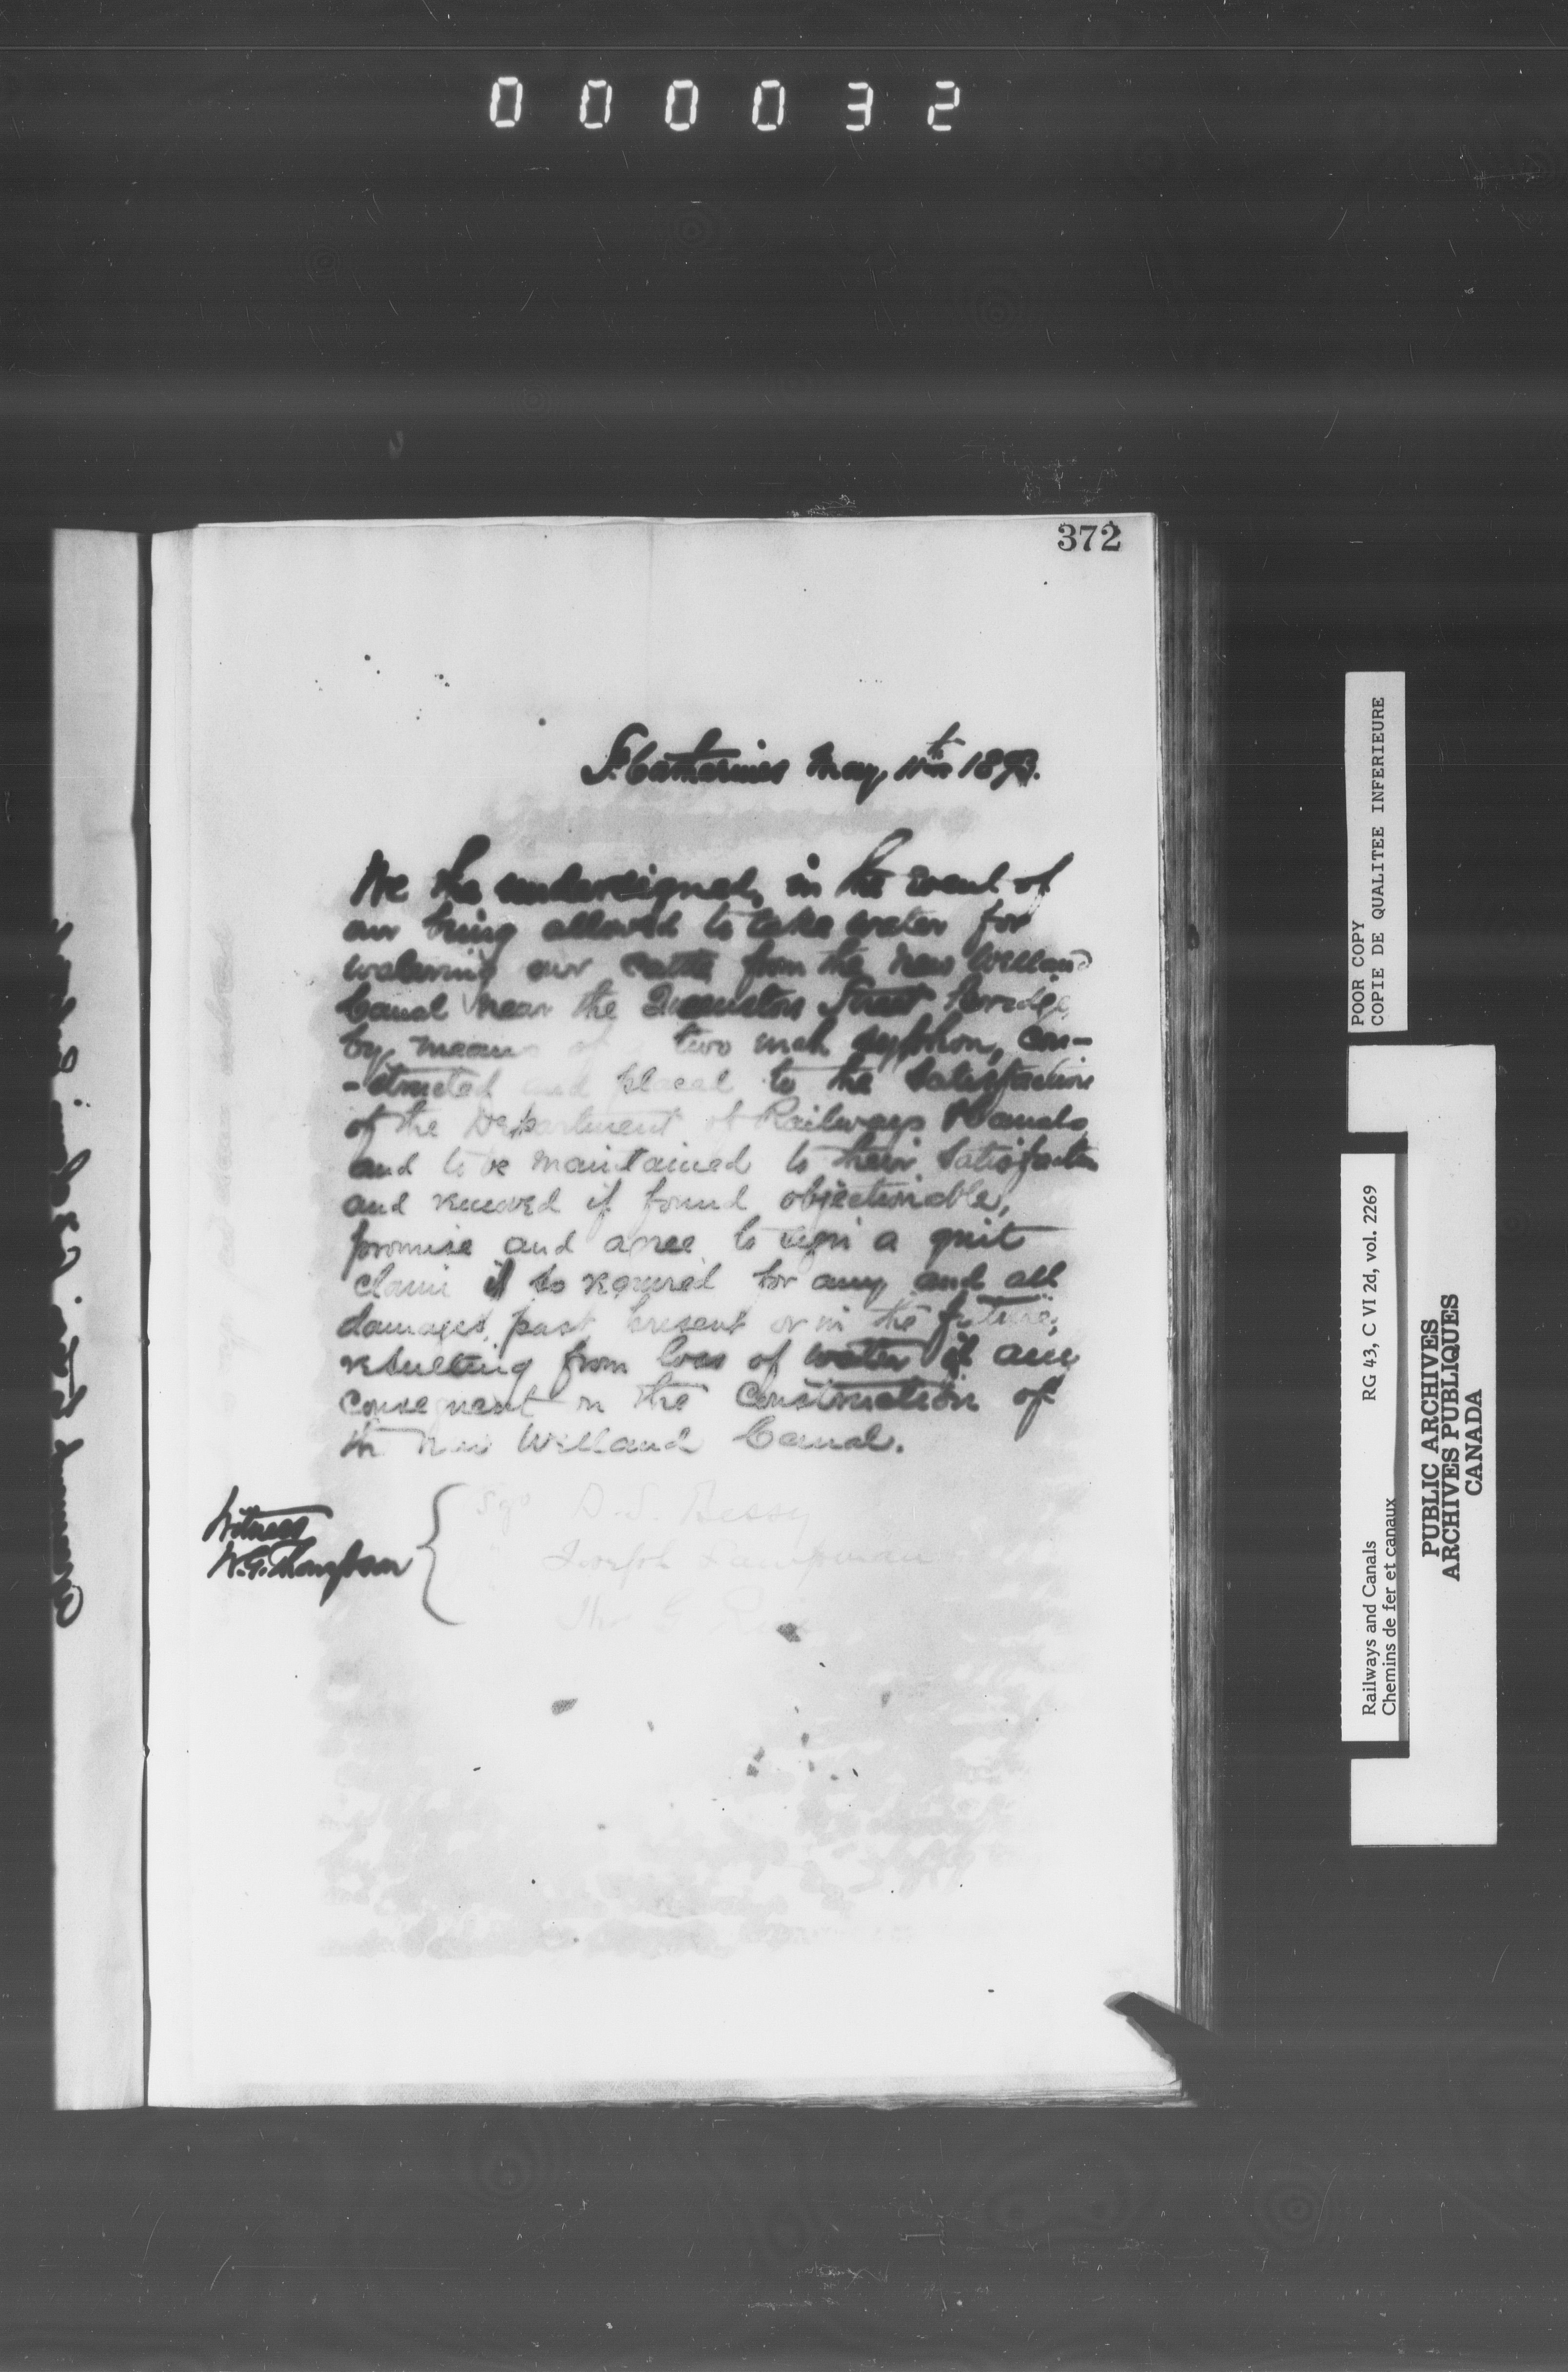 000032
372
St. Catharines May 11th 1893.
We the undersigned, in the event of
our being allowed to take water for
watering our cattle from the New Welland
Canal near the Queenston Street bridge
by means of two inch syphon, con-
-structed and placed to the satisfaction
of the Department of Railways & Canals
and to be maintained to their satisfaction
and removed if found objectionable,
promise and agree to sign a quit
claim if so required for any and all
damages, past present or in the future,
resulting from loss of water if any
consequent on the construction of
the New Welland Canal.
Sgd D. S. Bessey
Joseph
Witness
W. G. Thompson
POOR COPY
COPIE DE QUALITEE INFERIEURE
Railways and Canals RG 43, C VI 2d, vol. 2269
Chemins de fer et canaux
PUBLIC ARCHIVES
ARCHIVES PUBLIQUES
CANADA